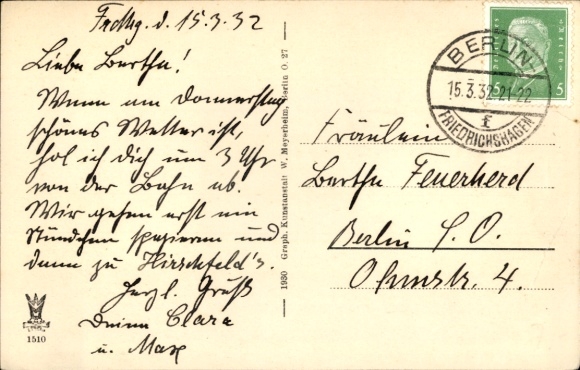 Frdhg. d. 15.3.32
Liebe Bertha!
Wenn am Donnerstag
schönes Wetter ist,
hol ich dich um 3 Uhr
von der Bahn ab.
Wir gehen erst ein
Stündchen spazieren und
dann zu Hirschfeld's.
Herzl. Gruß
Deine Clara
u. Max
1510
1930 Graph. Kunstanstalt W. Meyerheim, Berlin O. 27
BERLIN
15.3.32.21-22
f
FRIEDRICHSHAGEN
5
Fräulein
Bertha Feuerherd
Berlin S. O.
Ohmstr. 4.